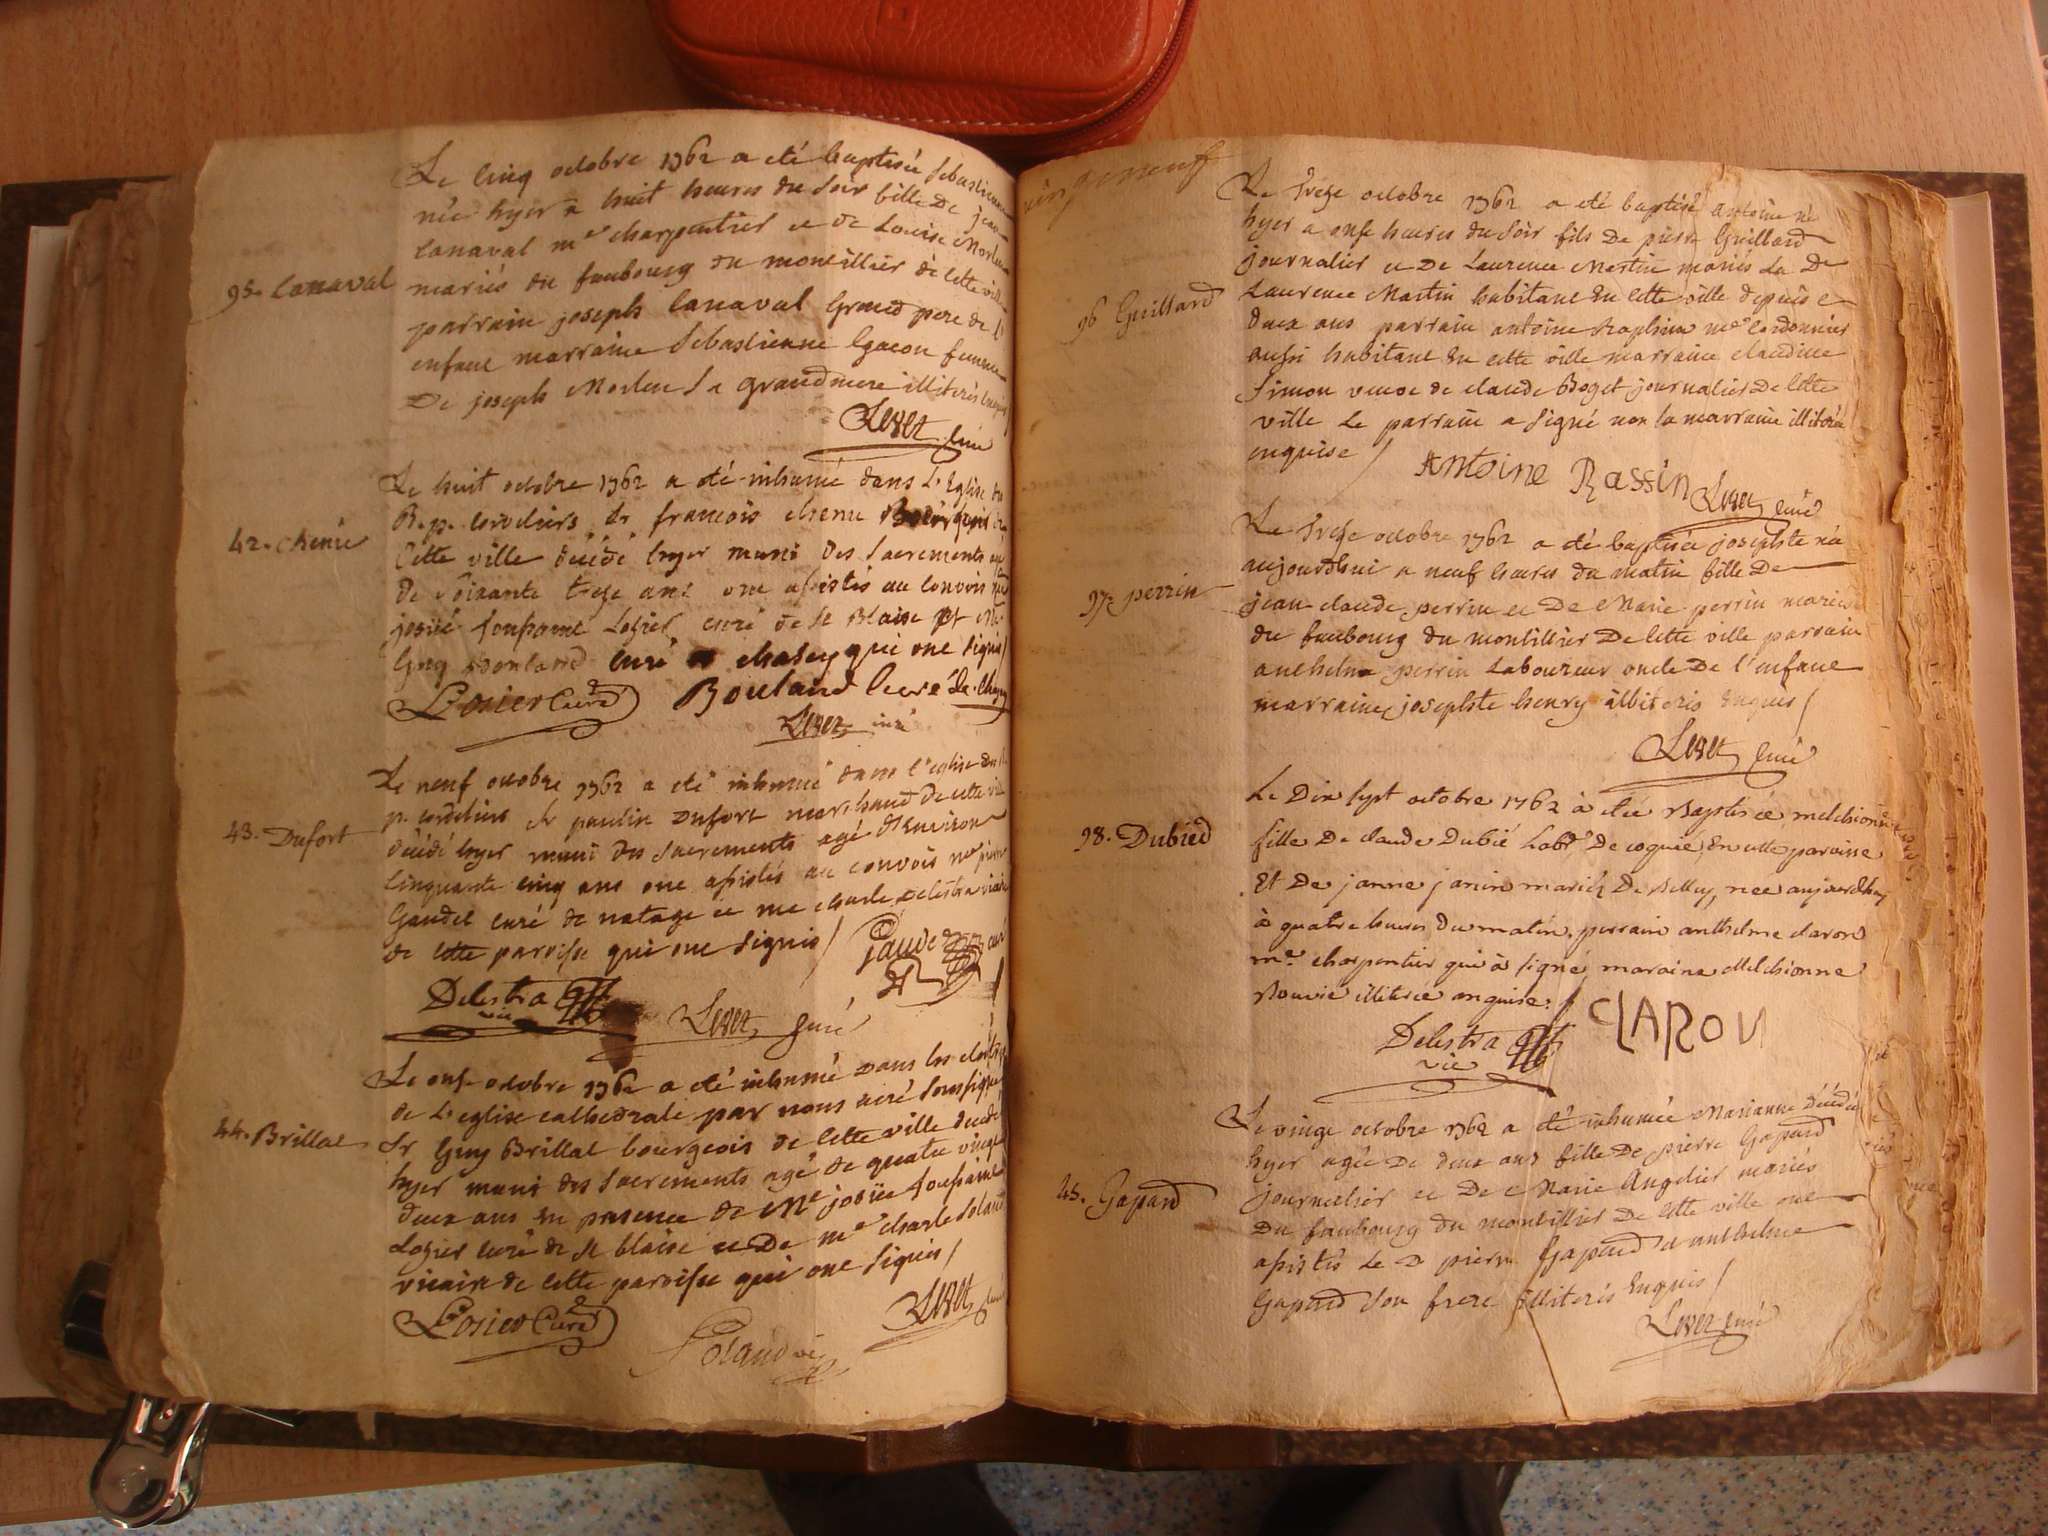 Le cinq octobre 1762 a été baptisée Sebastienne
née hyer a huit heures du soir fille De jean
95. Canaval
Canaval me charpentier et de Louise Morlen
mariés du faubourg du montillier de cette ville
parrain joseph Canaval Grand pere de l'
enfant marraine Sebastienne Gacon femme
De joseph Morlen sa grandmere illiterés enquis
Levet curé
Le huit octobre 1762 a été inhumé dans L'Eglise des
R. p. Cordeliers sr francois chenu Bourgeois de
42. chenu
Cette ville décédé hyer muni des Sacrements agé
de soixante treze ans ont assistés au convois me
josué toussaint Losier curé de st Blaise et Me
Guy Boulard curé chasey qui ont signés /
Losier Curé Boulard curé de Chasey
Levet curé
Le neuf octobre 1762 a été inhumé dans l'eglise des R.
p. cordeliers sr paulin Dufort marchand de cette ville
43. Dufort
décédé hyer muni des sacrements agé d'environ
Cinquante cinq ans ont assistés au convois me pierre
Gaudet curé de natage et me charle Delestra vicaire
de cette paroisse qui ont signés / Gaudet curé
Delestra vic Levet curé
Le onse octobre 1762 a été inhumé dans les cloitres
de L'eglise cathedrale par nous curé soussigné
44. Brillat
Sr Guy Brillat bourgeois de cette ville decedé
hyer muni des sacrements agé de quatre vingt
deux ans en presence de Me josué toussaint
Losier curé de st blaise et De me charle Poland
vicaire de cette paroisse qui ont signés /
Losier Curé Levet curé
Poland vic
Le treze octobre 1762 a été baptisé antoine né
hyer a onse heures du soir fils De pierre Guillard
journalier et De Laurence Martin mariés La De
96 Guillard
Laurence Martin habitant en cette ville depuis
deux ans parrain antoine me cordonnier
aussi habitant en cette ville marraine claudine
Simon veuve de claude Boget journalier De cette
ville Le parrain a signé non la marraine illiterée
enquise / Antoine Rassin Levet curé
Le treze octobre 1762 a été baptisée josephte née
aujourdhui a neuf heures du matin fille De
97. perrin
jean claude perrin et De Marie perrin mariés
du faubourg du montillier De cette ville parrain
anthelme perrin Laboureur oncle De l'enfant
marraine josephte henry illiterés enquis /
Levet curé
Le Dix sept octobre 1762 à été Baptisée melchionne
98. Dubied
fille De claude Dubié Labr De coguié, En cette paroisse
Et De janne janin mariés De Belley, née aujourdhuy
à quatre heures Du matin. perrain anthelme claron
me charpentier qui à signé, maraine Melchionne
Bouvié illiterée anquise. /
CLARON
Delestra vic
Le vingt octobre 1762 a été inhumée Marianne décédée
hyer agée De deux ans fille De pierre Gapard
45. Gapard
journalier et De Marie Angelier mariés
Du faubourg du montillier De cette ville ont
assistés Le D pierre Gapard et anthelme
Gapard son frere illiterés enquis /
Levet curé